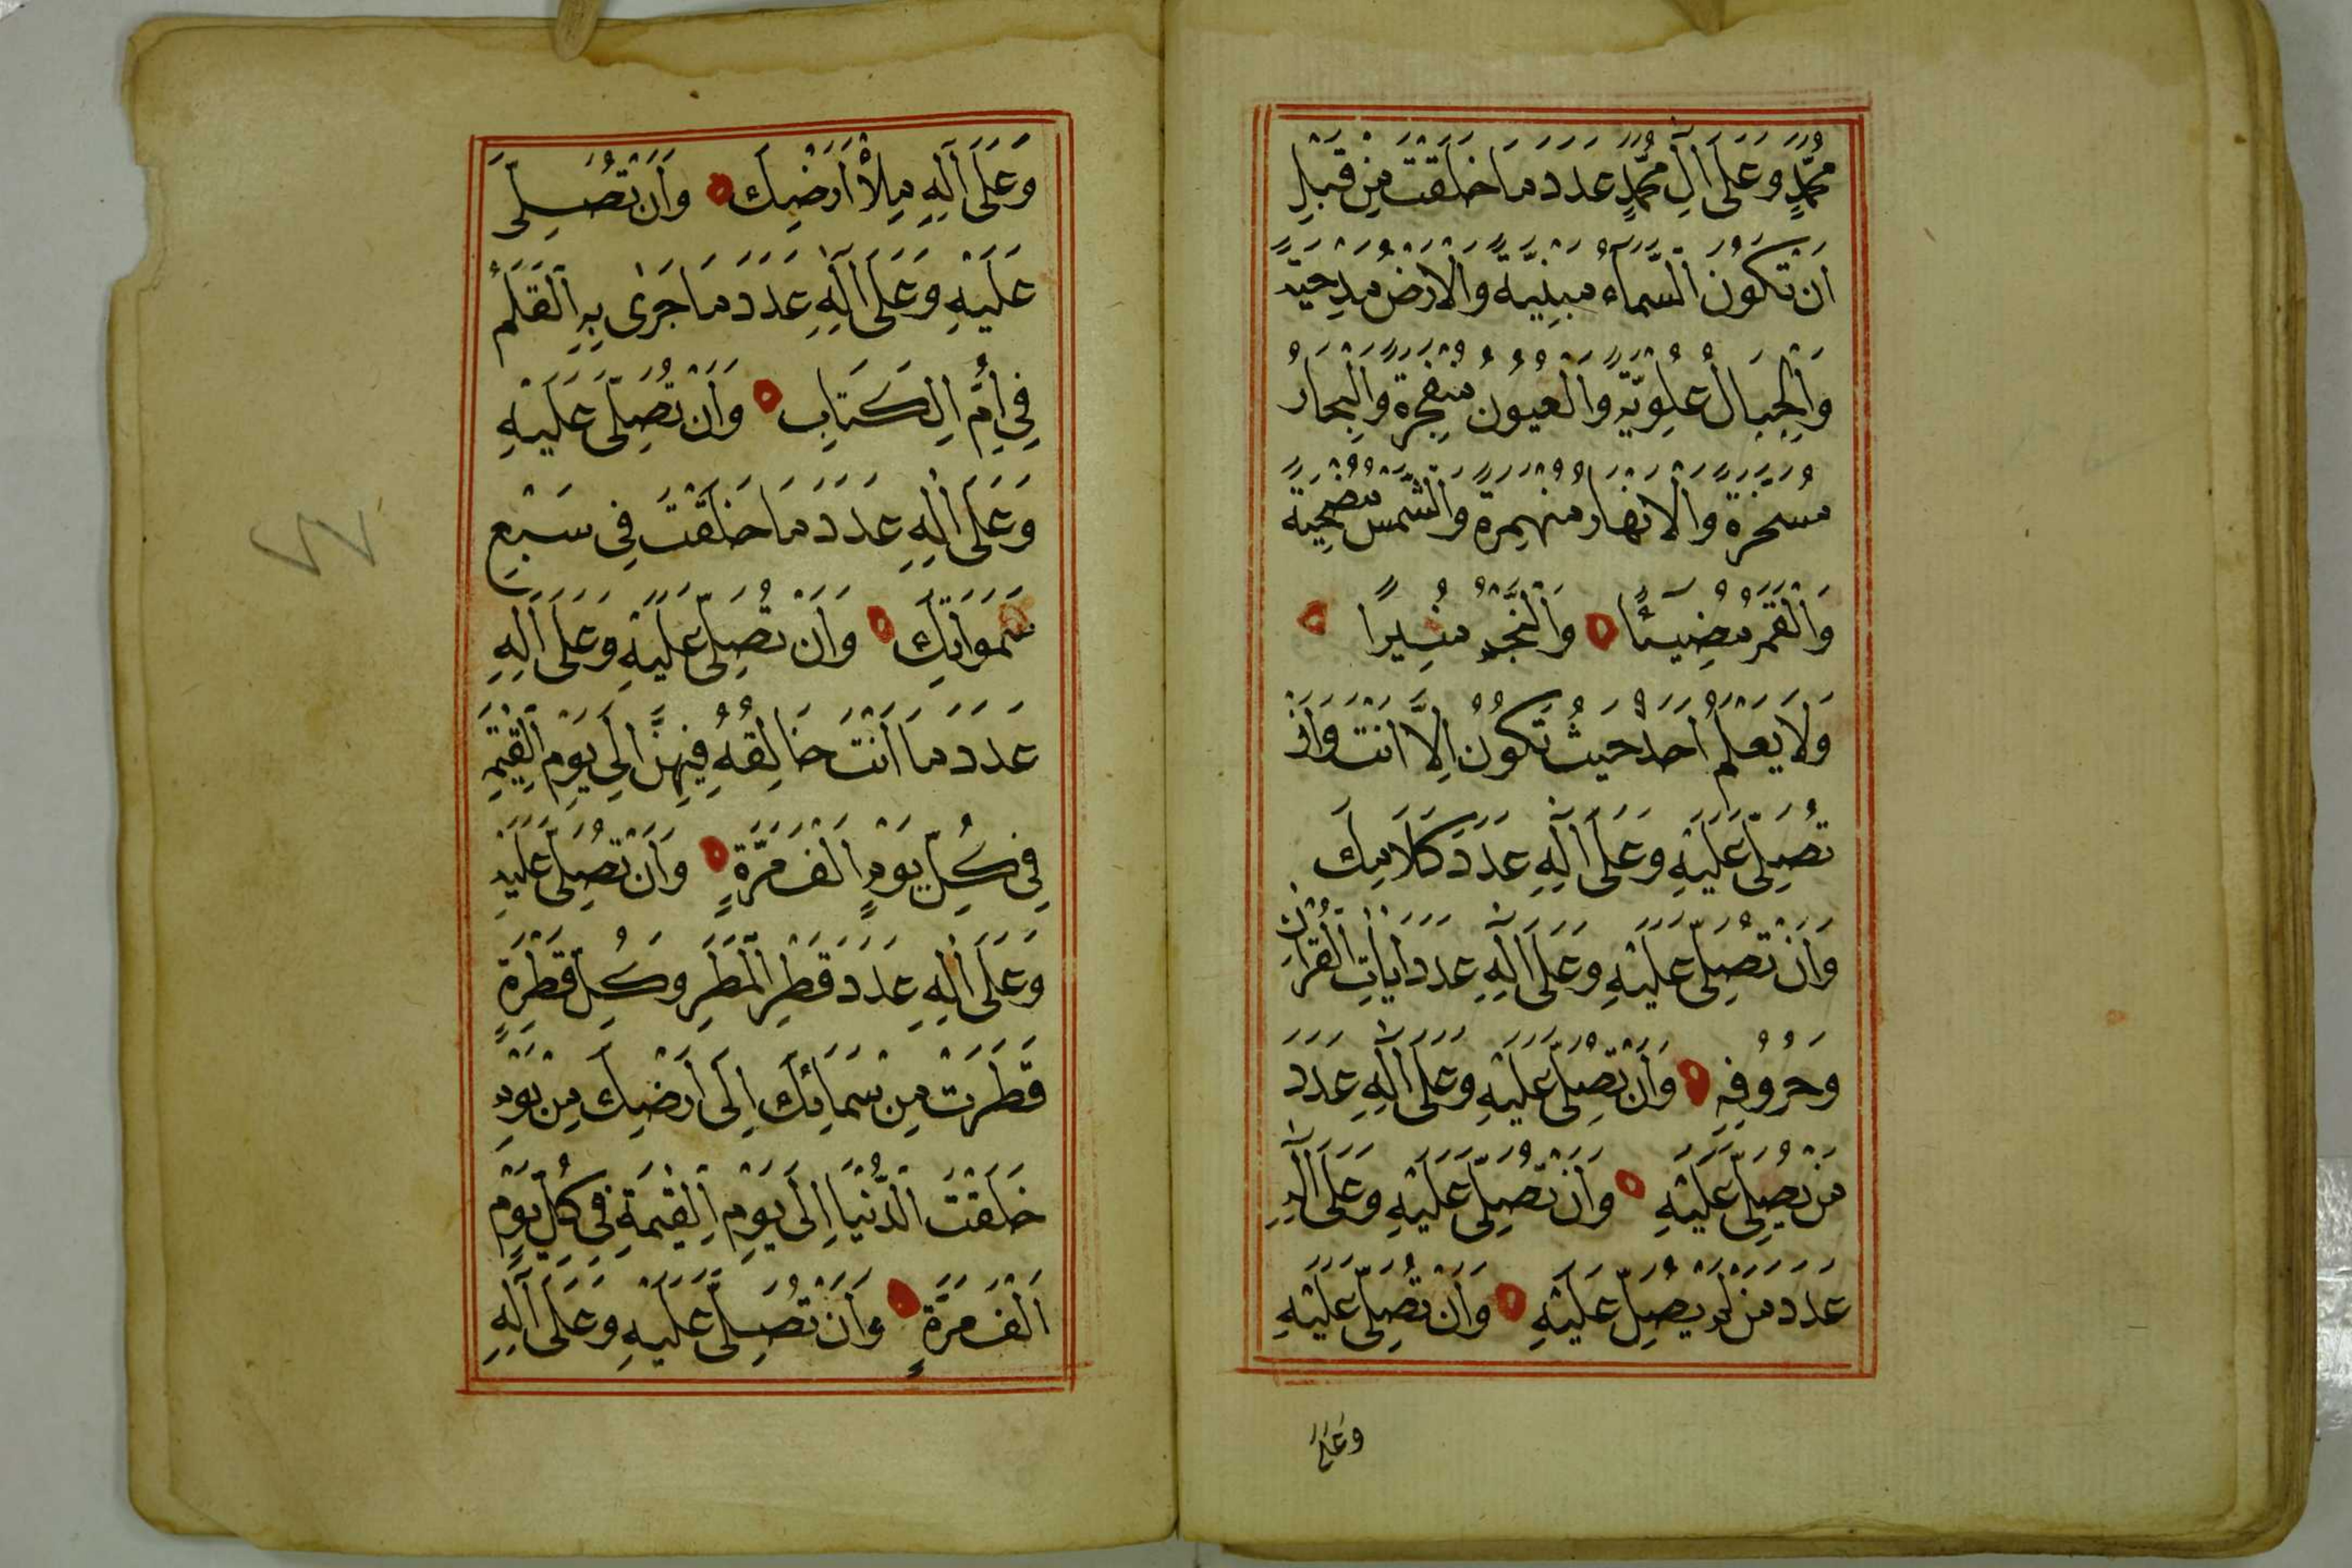 مُحَمَّدٍ وَعَلَى اٰلِ مُحَمَّدٍ عَدَدَ مَا خَلَقْتَ مِنْ قَبْلِ
اَنْ تَكُوْنَ السَّمَآءُ مَبْنِيَّةً وَالْاَرْضُ مَدْحِيَّةً
وَالْجِبَالُ عُلْوِيَّةً وَالْعُيُوْنُ مُنْفَجِرَةً وَالْبِحَارُ
مُسَخَّرَةً وَالْاَنْهَارُ مُنْهَمِرَةً وَالشَّمْسُ مُضْحِيَةً
وَالْقَمَرُ مُضِيْئًا وَالنَّجْمُ مُنِيْرًا
وَلَا يَعْلَمُ اَحَدٌ حَيْثُ تَكُوْنُ اِلَّا اَنْتَ وَاَنْ
تُصَلِّيَ عَلَيْهِ وَعَلَى اٰلِهِ عَدَدَ كَلَامِكَ
وَاَنْ تُصَلِّيَ عَلَيْهِ وَعَلَى اٰلِهِ عَدَدَ اٰيَاتِ الْقُرْاٰنِ
وَحُرُوْفِهِ وَاَنْ تُصَلِّيَ عَلَيْهِ وَعَلَى اٰلِهِ عَدَدَ
مَنْ يُصَلِّي عَلَيْهِ وَاَنْ تُصَلِّيَ عَلَيْهِ وَعَلَى اٰلِهِ
عَدَدَ مَنْ لَمْ يُصَلِّ عَلَيْهِ وَاَنْ تُصَلِّيَ عَلَيْهِ
وَعَلَى
وَعَلَى اٰلِهِ مِلْأَ اَرْضِكَ وَاَنْ تُصَلِّيَ
عَلَيْهِ وَعَلَى اٰلِهِ عَدَدَ مَا جَرٰى بِهِ الْقَلَمُ
فِي اُمِّ الْكِتَابِ وَاَنْ تُصَلِّيَ عَلَيْهِ
وَعَلَى اٰلِهِ عَدَدَ مَا خَلَقْتَ فِي سَبْعِ
سَمٰوَاتِكَ وَاَنْ تُصَلِّيَ عَلَيْهِ وَعَلَى اٰلِهِ
عَدَدَ مَا اَنْتَ خَالِقُهُ فِيْهِنَّ اِلَى يَوْمِ الْقِيٰمَةِ
فِي كُلِّ يَوْمٍ اَلْفَ مَرَّةٍ وَاَنْ تُصَلِّيَ عَلَيْهِ
وَعَلَى اٰلِهِ عَدَدَ قَطْرِ الْمَطَرِ وَكُلِّ قَطْرَةٍ
قَطَرَتْ مِنْ سَمَائِكَ اِلَى اَرْضِكَ مِنْ يَوْمِ
خَلَقْتَ الدُّنْيَا اِلَى يَوْمِ الْقِيٰمَةِ فِي كُلِّ يَوْمٍ
اَلْفَ مَرَّةٍ وَاَنْ تُصَلِّيَ عَلَيْهِ وَعَلَى اٰلِهِ